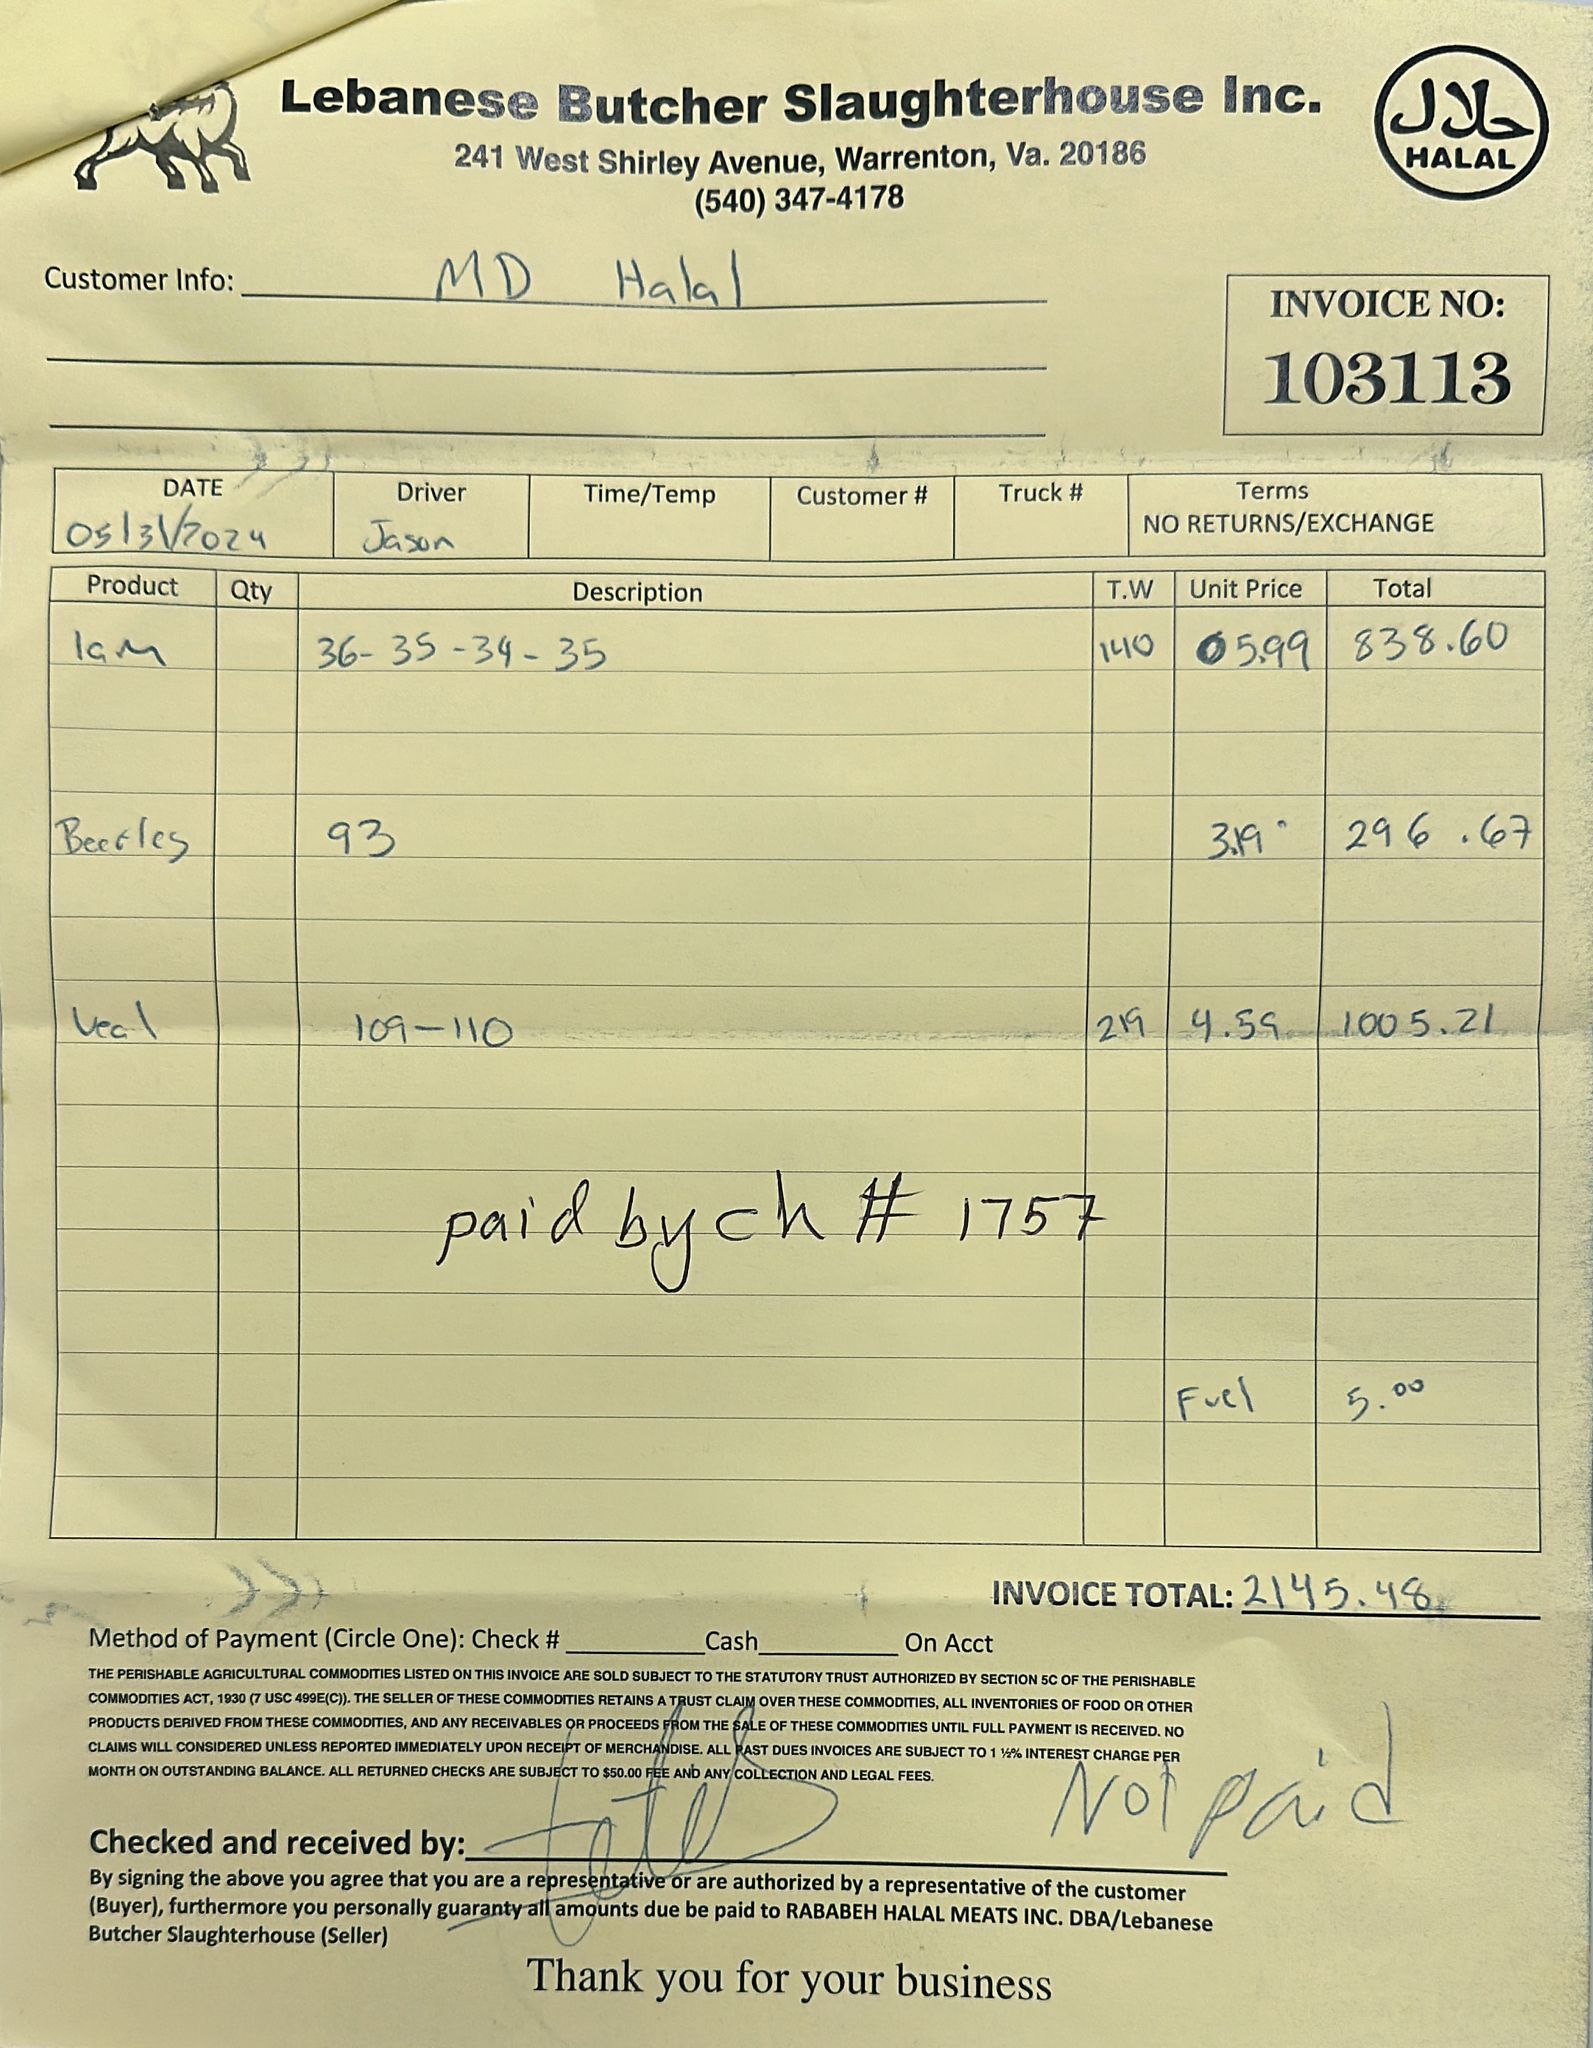 Lebanese Butcher Slaughterhouse Inc.
حلال
HALAL
241 West Shirley Avenue, Warrenton, Va. 20186
(540) 347-4178
Customer Info: MD Halal
INVOICE NO:
103113
DATE Driver Time/Temp Customer # Truck # Terms
05/31/2024 Jason NO RETURNS/EXCHANGE
Product Qty Description T.W Unit Price Total
lam 36- 35 - 34 - 35 140 05.99 838.60
93 3.19 296.67
Veal 109-110 219 4.59 1005.21
paid by ch # 1757
Fuel 5.00
INVOICE TOTAL: 2145.48
Method of Payment (Circle One): Check # Cash On Acct
THE PERISHABLE AGRICULTURAL COMMODITIES LISTED ON THIS INVOICE ARE SOLD SUBJECT TO THE STATUTORY TRUST AUTHORIZED BY SECTION 5C OF THE PERISHABLE
COMMODITIES ACT, 1930 (7 USC 499E(C)). THE SELLER OF THESE COMMODITIES RETAINS A TRUST CLAIM OVER THESE COMMODITIES, ALL INVENTORIES OF FOOD OR OTHER
PRODUCTS DERIVED FROM THESE COMMODITIES, AND ANY RECEIVABLES OR PROCEEDS FROM THE SALE OF THESE COMMODITIES UNTIL FULL PAYMENT IS RECEIVED. NO
CLAIMS WILL CONSIDERED UNLESS REPORTED IMMEDIATELY UPON RECEIPT OF MERCHANDISE. ALL PAST DUES INVOICES ARE SUBJECT TO 1 ½% INTEREST CHARGE PER
MONTH ON OUTSTANDING BALANCE. ALL RETURNED CHECKS ARE SUBJECT TO $50.00 FEE AND ANY COLLECTION AND LEGAL FEES.
Not paid
Checked and received by:
By signing the above you agree that you are a representative or are authorized by a representative of the customer
(Buyer), furthermore you personally guaranty all amounts due be paid to RABABEH HALAL MEATS INC. DBA/Lebanese
Butcher Slaughterhouse (Seller)
Thank you for your business